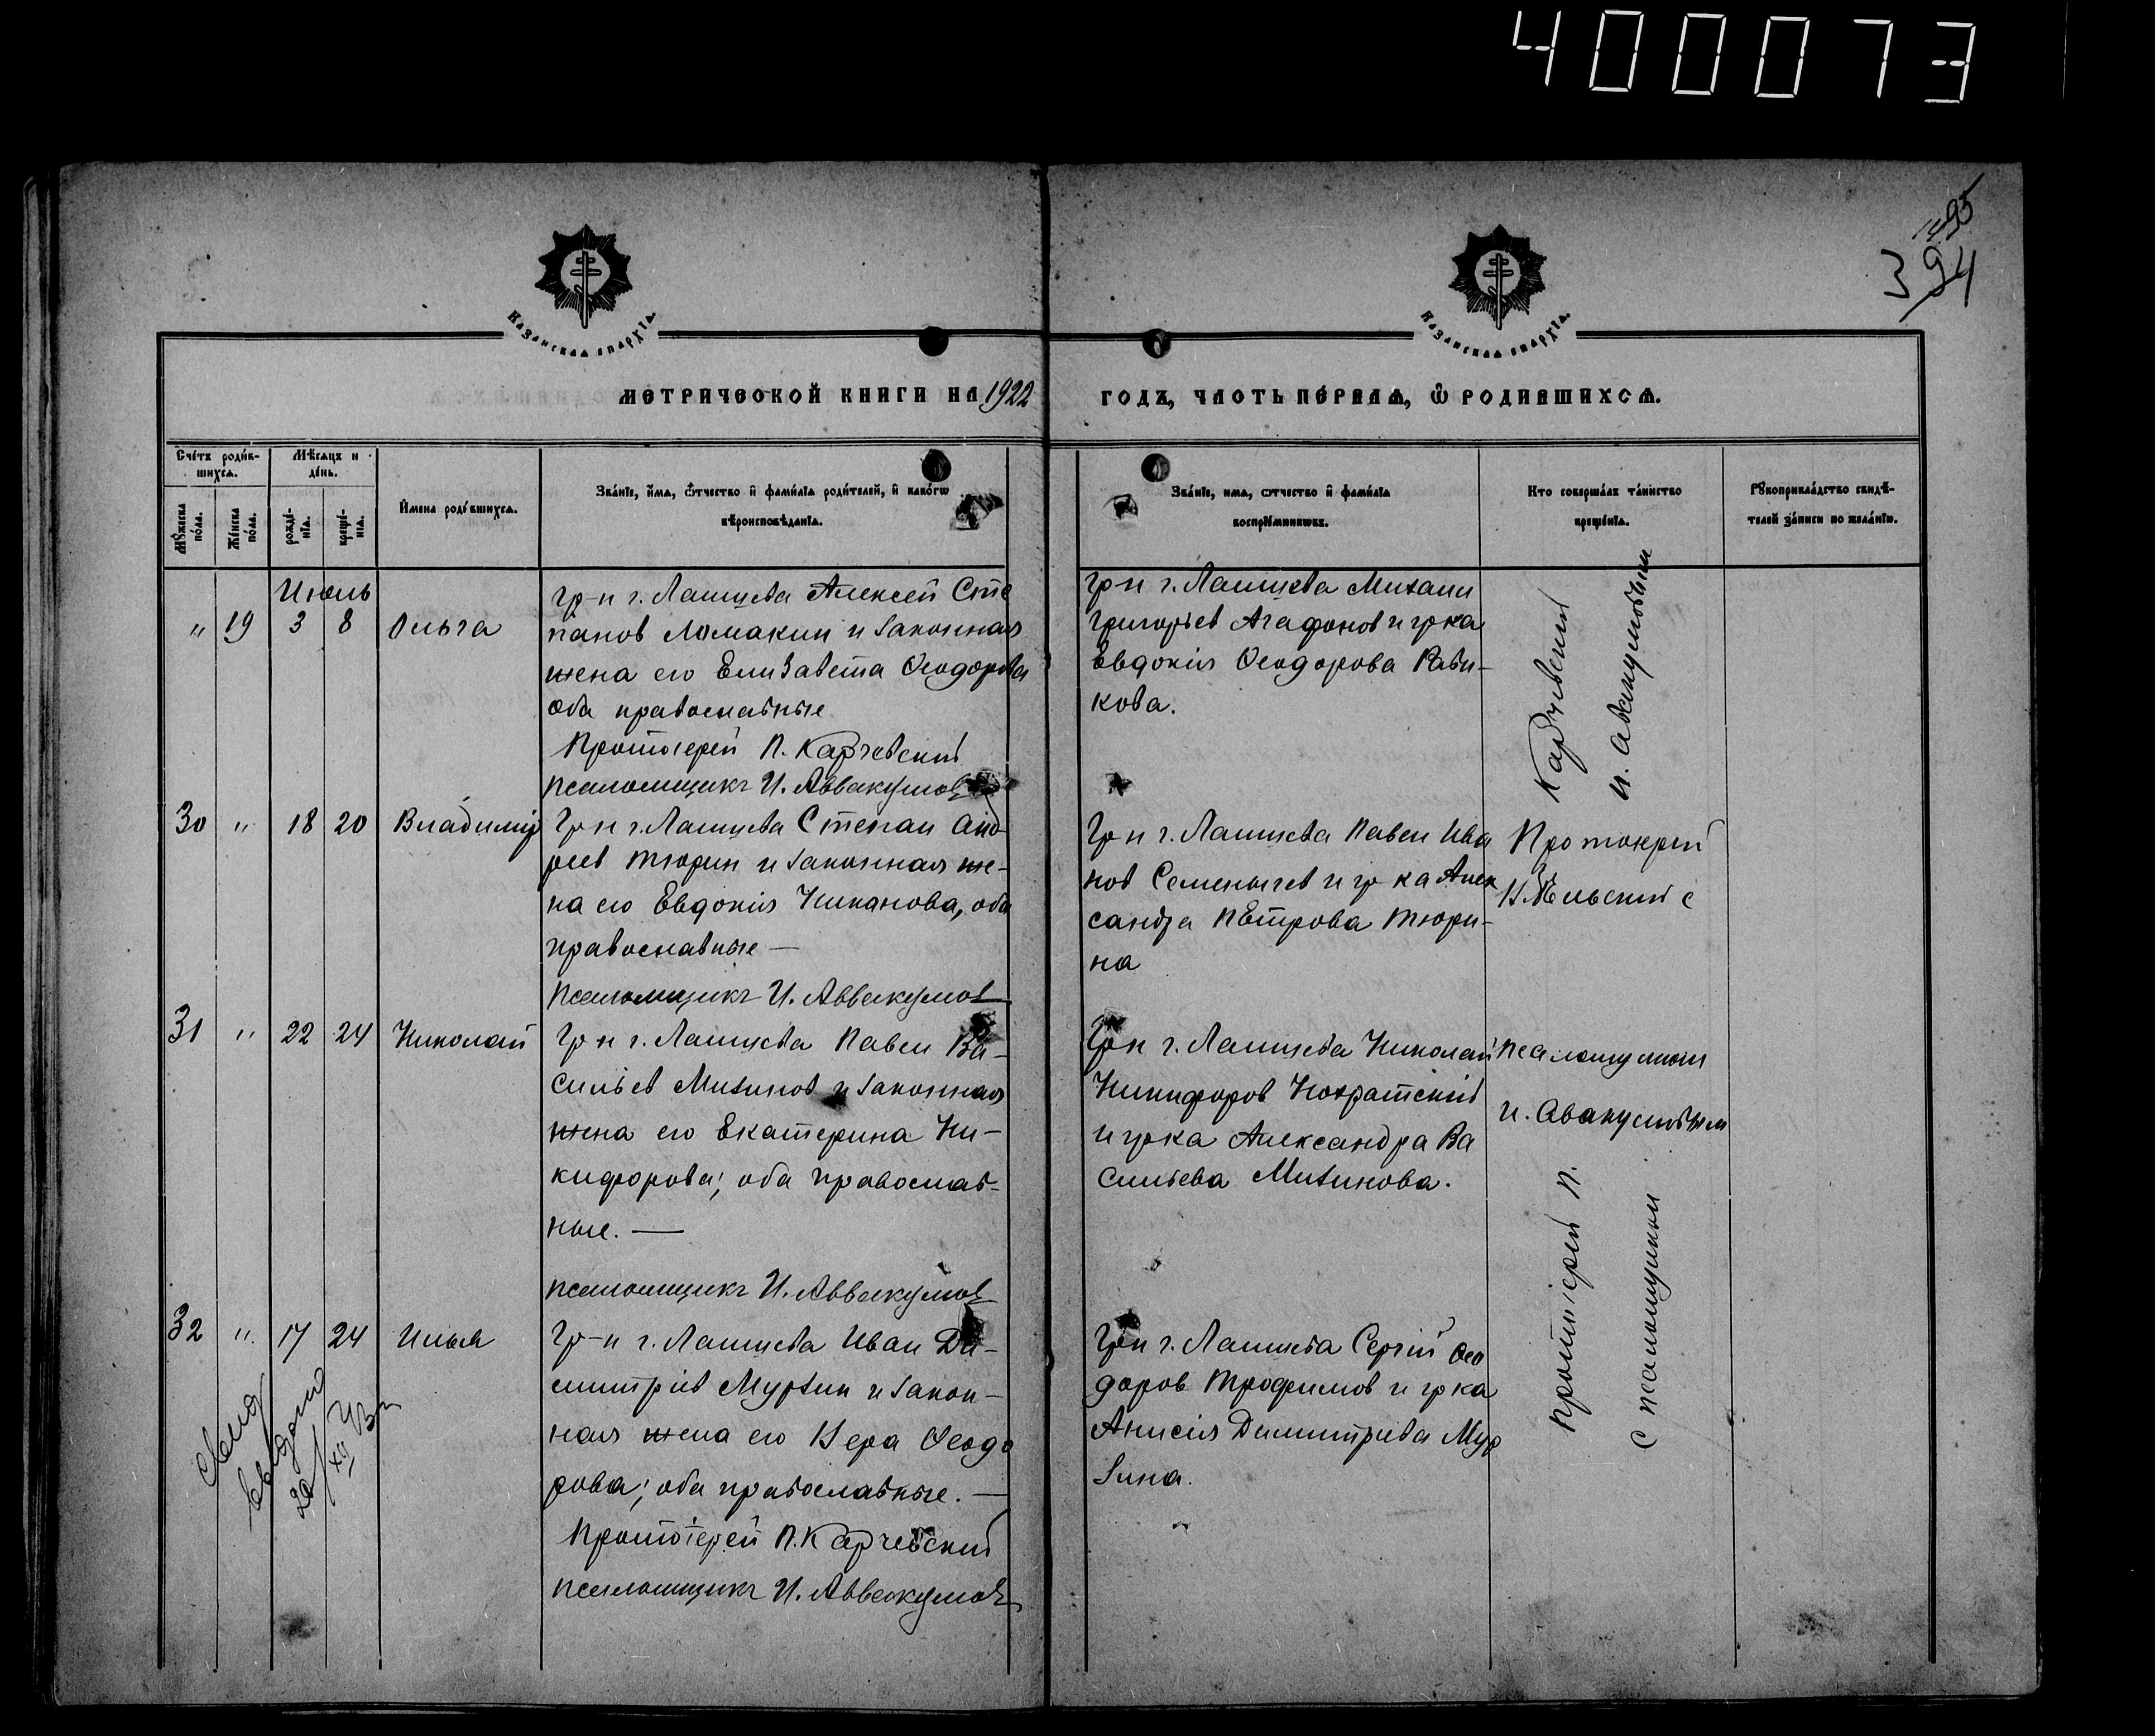 400073
495
394
Казанская епархїа.
Казанская епархїа.
МЕТРИЧЕСКОЙ КНИГИ НА 1922
ГОДЪ, ЧАСТЬ ПЕ́РВАѦ, Ѽ РОДИВШИХСѦ.
Сче́тъ роди́в-
шихсѧ.
Мѣ́сѧцъ и
де́нь.
Мꙋ́жеска
по́ла.
Же́нска
по́ла.
рожде́-
нїѧ.
креще́-
нїѧ.
И҆мена роди́вшихсѧ.
Зва́нїе, и҆́мѧ, ѻ҆́тчество и҆ фами́лїа роди́телей, и҆ како́гѡ
вѣроисповѣ́данїѧ.
Зва́нїе, имѧ, ѻтчество и҆ фами́лїа
воспрїе́мникѡвъ.
Кто соверша́лъ та́инство
креще́нїѧ.
Рꙋкоприкла́дство свидѣ́-
телей за́писи по жела́нїю.
Июль
" 19 3 8 Ольга
гр-н г. Лаишева Алексей Сте
панов Ломакин и законная
жена его Елизавета Ѳеодорова
оба православные
Протоіерей П. Карчевский
псаломщикъ И. Аввакумов
гр-н г. Лаишева Михаил
Григорьев Агафонов и гр ка
Евдокія Ѳеодорова Раби-
кова.
30 " 18 20 Владимір
Гр н г. Лаишева Степан Анд
реев Тюрин и законная же-
на его Евдокія Никанова, оба
православные —
псаломщикъ И. Аввакумов
Гр н г. Лаишева Павел Ива
нов Семенычев и гр ка Алек
сандра Петрова Тюри-
на
Протоиерей
Н. Бельский с
31 " 22 24 Николай
Гр н г. Лаишева Павел Ва-
сильев Мизинов и законная
жена его Екатерина Ни-
кифорова; оба православ-
ные. —
псаломщикъ И. Аввакумов
Гр н г. Лаишева Николай
Никифоров Нохратский
и гр ка Александра Ва
сильева Мизинова.
псаломщиком
И. Авакумовым
32 " 17 24 Илья
Гр-н г. Лаишева Иван Ди-
митріев Мурзин и закон-
ная жена его Вера Ѳеодо
рова; оба православные. —
Протоіерей П. Карчевский
псаломщикъ И. Аввакумов
Гр н г. Лаишева Сергій Ѳео
доров Трофимов и гр ка
Анисія Димитріева Мур
зина.
протоіерей П.
Карчевский
с псаломщиком
И. Авакумовым